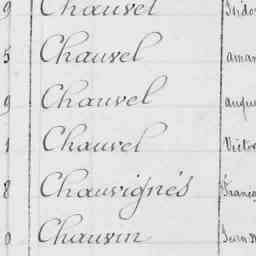 9 Chauvel
5 Chauvel aman
9 Chauvel augus
1 Chauvel Victo
8 Chauvignés Franço
0 Chauvin Jean